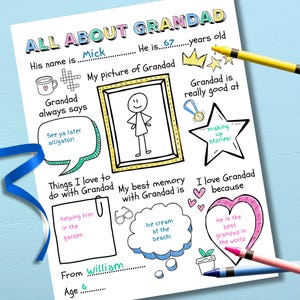 ALL ABOUT GRANDAD
His name is Mick He is 67 years old
My picture of Grandad
Grandad
always says
See ya later
alligator!
Grandad is
really good at
making
up
stories!
Things I love to
do with Grandad
helping him
in the
garden
My best memory
with Grandad is
Ice cream
at the
beach!
I love Grandad
because
He is the
best
grandad in
the world
From William
Age 6